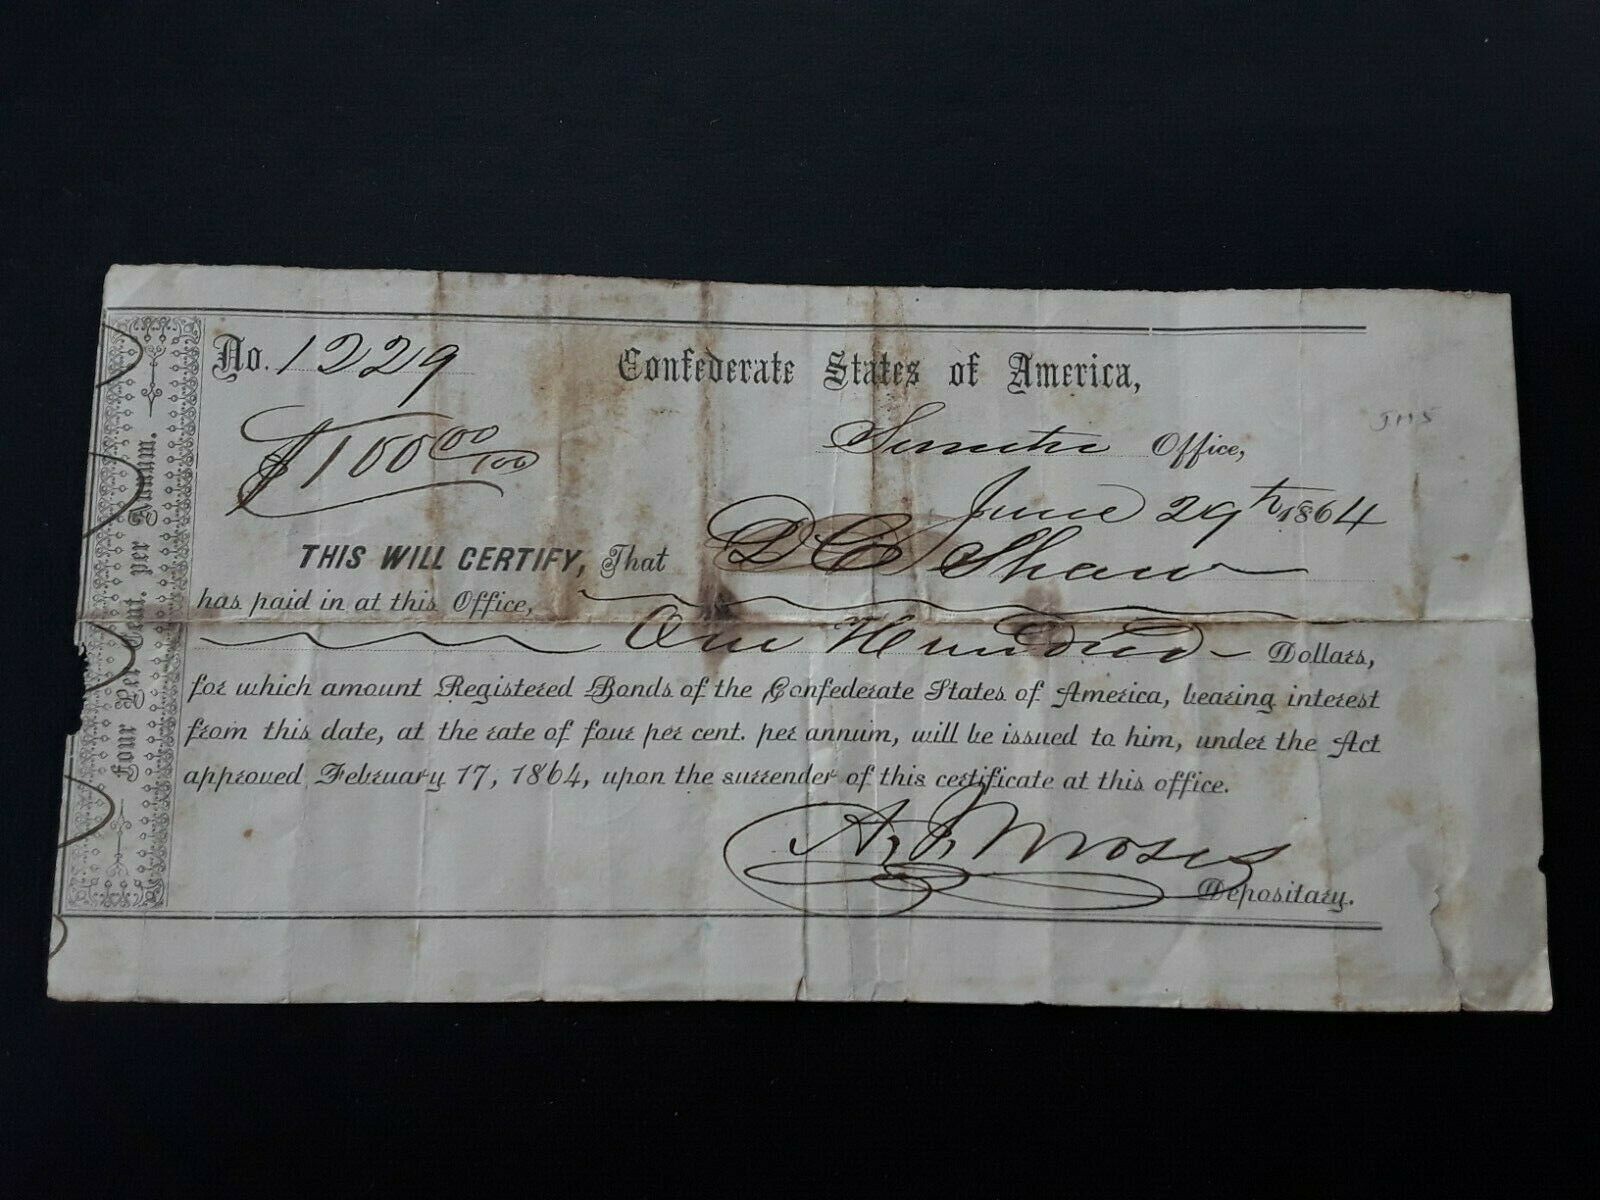 No. 1229
Confederate States of America,
$100 00/100
Sumter Office,
June 29th 1864
THIS WILL CERTIFY, That D C Shaw
has paid in at this Office,
One Hundred Dollars,
for which amount Registered Bonds of the Confederate States of America, bearing interest
from this date, at the rate of four per cent. per annum, will be issued to him, under the Act
approved February 17, 1864, upon the surrender of this certificate at this office.
A. J. Moses
Depositary.
Four Per Cent. per Annum.